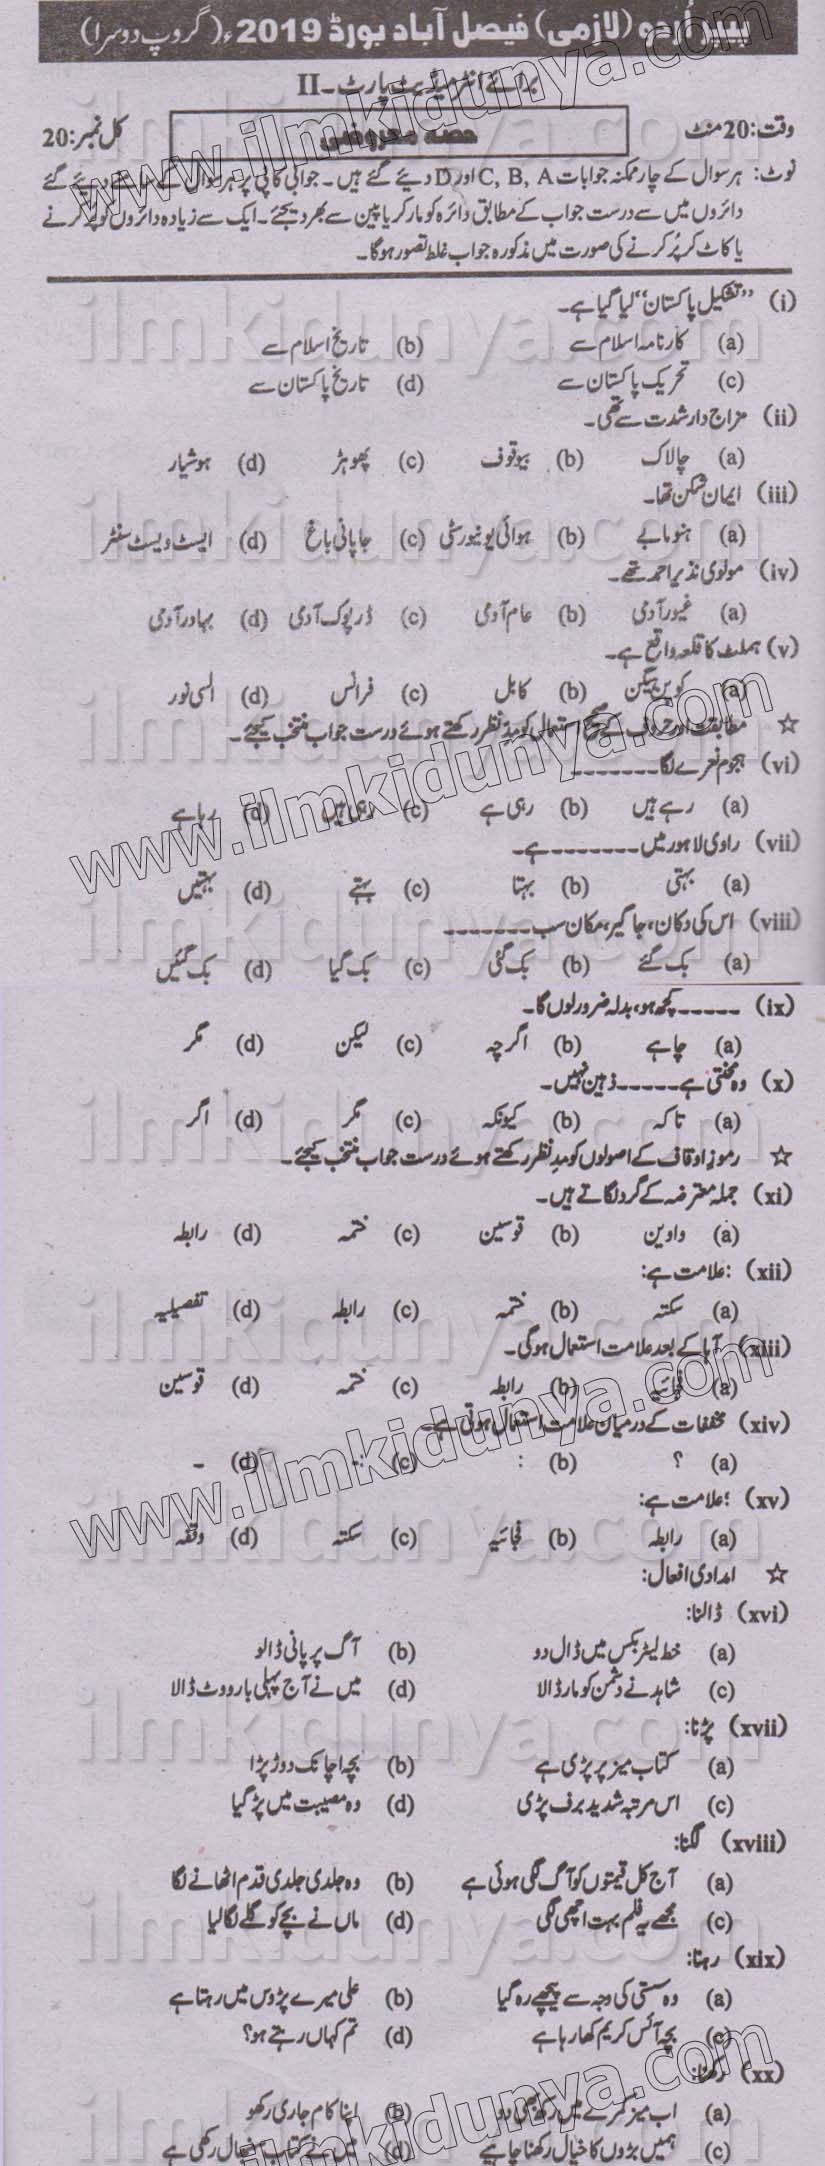 پیپر اُردو (لازمی) فیصل آباد بورڈ 2019ء (گروپ دوسرا)
برائے انٹرمیڈیٹ پارٹ - II
وقت: 20 منٹ حصہ معروضی کل نمبر: 20
نوٹ: ہر سوال کے چار ممکنہ جوابات A ،B ،C اور D دیئے گئے ہیں۔ جوابی کاپی پر ہر سوال کے سامنے دیئے گئے
دائروں میں سے درست جواب کے مطابق دائرہ کو مارکر یا پین سے بھر دیجئے۔ ایک سے زیادہ دائروں کو پُر کرنے
یا کاٹ کر پُر کرنے کی صورت میں مذکورہ جواب غلط تصور ہوگا۔
(i) ”تشکیل پاکستان“ لیا گیا ہے۔
(a) کارنامہ اسلام سے (b) تاریخ اسلام سے
(c) تحریک پاکستان سے (d) تاریخ پاکستان سے
(ii) مزاج دار شدت سے تھی۔
(a) چالاک (b) بیوقوف (c) پھوہڑ (d) ہوشیار
(iii) ایمان شکن تھا۔
(a) ہنومابے (b) ہوائی یونیورسٹی (c) جاپانی باغ (d) ایسٹ ویسٹ سنٹر
(iv) مولوی نذیر احمد تھے۔
(a) غیور آدمی (b) عام آدمی (c) ڈرپوک آدمی (d) بہادر آدمی
(v) ہملٹ کا قلعہ واقع ہے۔
(a) کوپن ہیگن (b) کابل (c) فرانس (d) السی نور
☆ مطابقت اور حروف کے صحیح استعمال کو مدِنظر رکھتے ہوئے درست جواب منتخب کیجئے۔
(vi) ہجوم نعرے لگا -------
(a) رہے ہیں (b) رہی ہے (c) رہی ہیں (d) رہا ہے
(vii) راوی لاہور میں -------- ہے۔
(a) بہتی (b) بہتا (c) بہتے (d) بہتیں
(viii) اس کی دکان، جاگیر، مکان سب -------
(a) بک گئے (b) بک گئی (c) بک گیا (d) بک گئیں
(ix) ----- کچھ ہو، بدلہ ضرور لوں گا۔
(a) چاہے (b) اگرچہ (c) لیکن (d) مگر
(x) وہ محنتی ہے ----- ذہین نہیں۔
(a) تاکہ (b) کیونکہ (c) مگر (d) اگر
☆ رموزِ اوقاف کے اصولوں کو مدِنظر رکھتے ہوئے درست جواب منتخب کیجئے۔
(xi) جملہ معترضہ کے گرد لگاتے ہیں۔
(a) واوین (b) قوسین (c) ختمہ (d) رابطہ
(xii) : علامت ہے:
(a) سکتہ (b) ختمہ (c) رابطہ (d) تفصیلیہ
(xiii) آہا کے بعد علامت استعمال ہوگی۔
(a) فجائیہ (b) رابطہ (c) ختمہ (d) قوسین
(xiv) مخففات کے درمیان علامت استعمال ہوتی ہے۔
(a) ؟ (b) : (c) :- (d) ۔
(xv) ؛ علامت ہے:
(a) رابطہ (b) فجائیہ (c) سکتہ (d) وقفہ
☆ امدادی افعال:
(xvi) ڈالنا:
(a) خط لیٹر بکس میں ڈال دو (b) آگ پر پانی ڈالو
(c) شاہد نے دشمن کو مار ڈالا (d) میں نے آج پہلی بار ووٹ ڈالا
(xvii) پڑنا:
(a) کتاب میز پر پڑی ہے (b) بچہ اچانک دوڑ پڑا
(c) اس مرتبہ شدید برف پڑی (d) وہ مصیبت میں پڑ گیا
(xviii) لگنا:
(a) آج کل قیمتوں کو آگ لگی ہوئی ہے (b) وہ جلدی جلدی قدم اٹھانے لگا
(c) مجھے یہ فلم بہت اچھی لگی (d) ماں نے بچے کو گلے لگا لیا
(xix) رہنا:
(a) وہ سستی کی وجہ سے پیچھے رہ گیا (b) علی میرے پڑوس میں رہتا ہے
(c) بچہ آئس کریم کھا رہا ہے (d) تم کہاں رہتے ہو؟
(xx) رکھنا:
(a) اب میز کمرے میں رکھ بھی دو (b) اپنا کام جاری رکھو
(c) ہمیں بڑوں کا خیال رکھنا چاہیے (d) میں نے کتاب سنبھال رکھی ہے
www.ilmkidunya.com